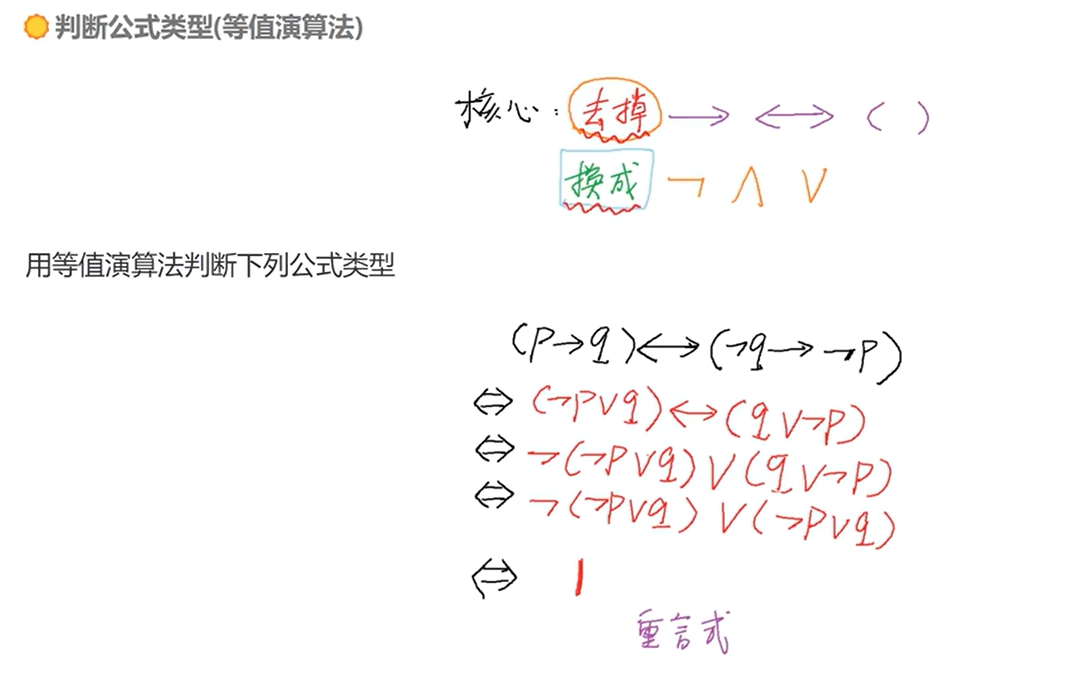 判断公式类型(等值演算法)
核心：去掉 → ↔ ( )
换成 ¬ ∧ ∨
用等值演算法判断下列公式类型
(P→q)↔(¬q→¬P)
⇔ (¬P∨q)↔(q∨¬P)
⇔ ¬(¬P∨q)∨(q∨¬P)
⇔ ¬(¬P∨q)∨(¬P∨q)
⇔ 1
重言式